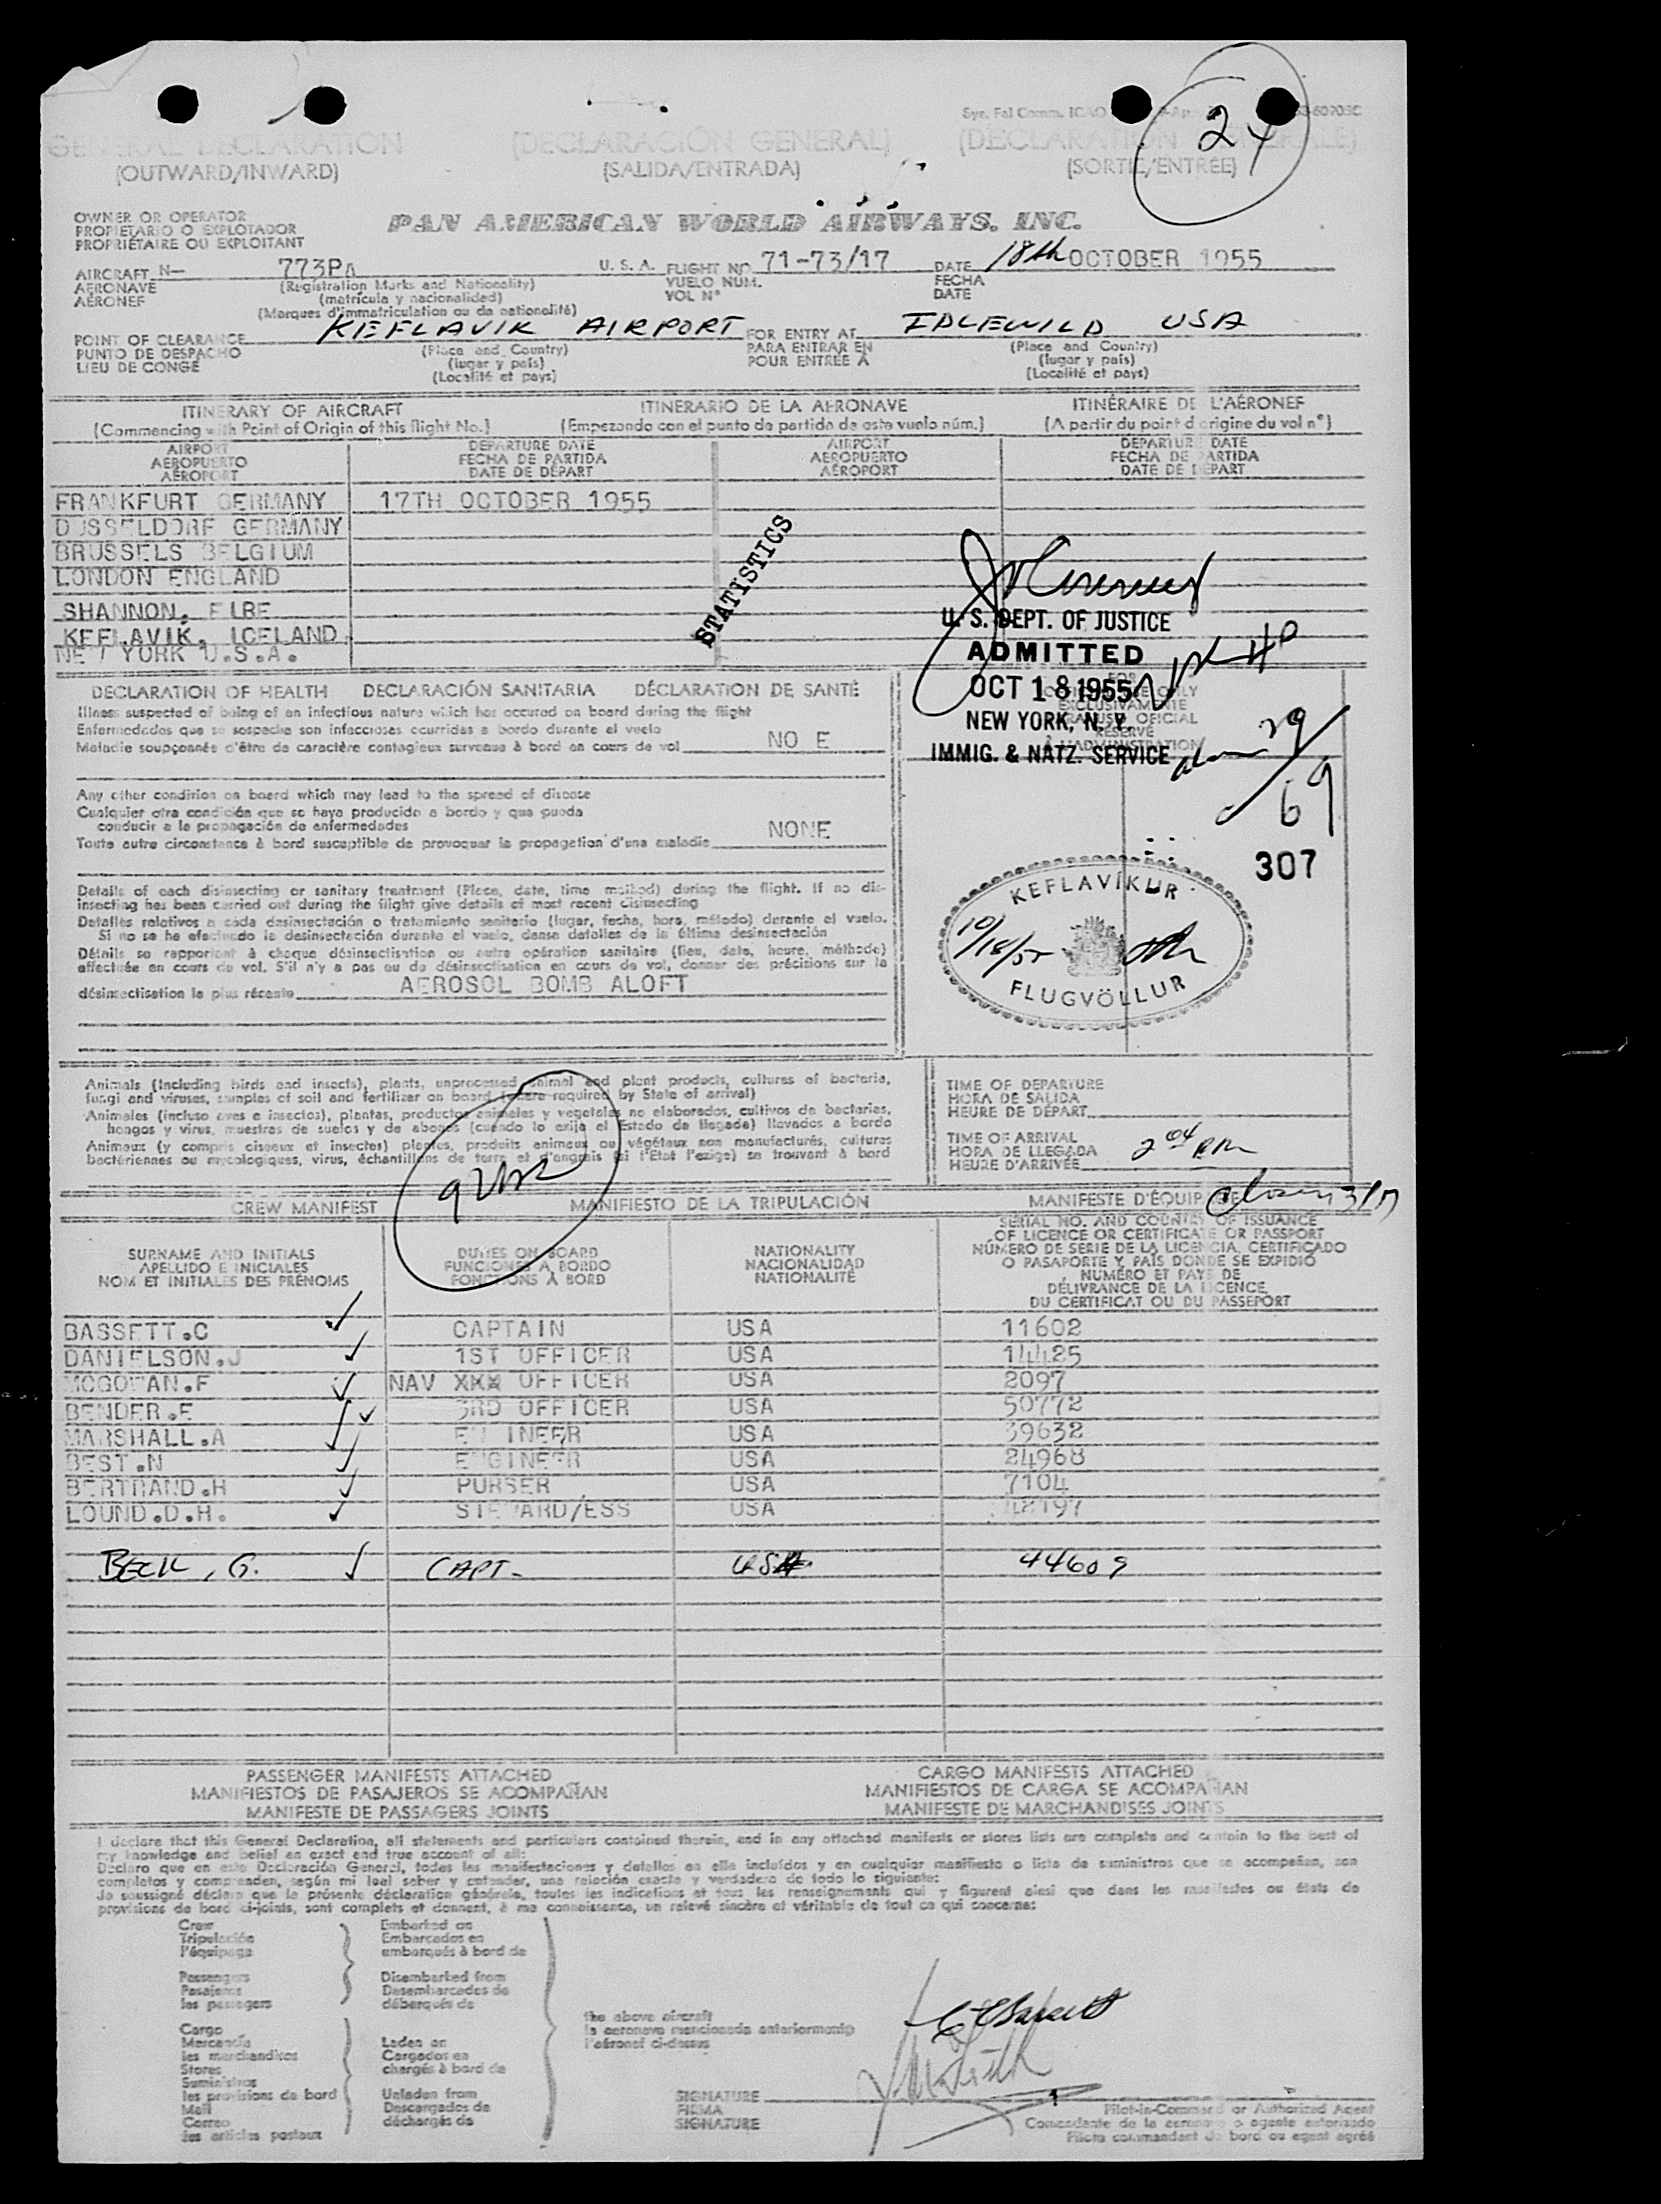 24
Sys. Fal Comm. ICAO
GENERAL DECLARATION (DECLARACIÓN GENERAL) (DECLARATION GÉNÉRALE)
(OUTWARD/INWARD) (SALIDA/ENTRADA) (SORTIE/ENTRÉE)
OWNER OR OPERATOR
PROPIETARIO O EXPLOTADOR
PROPRIÉTAIRE OU EXPLOITANT
PAN AMERICAN WORLD AIRWAYS, INC.
AIRCRAFT N- 773PA U. S. A. FLIGHT NO. 71-73/17 DATE 18th OCTOBER 1955
AERONAVE (Registration Marks and Nationality) VUELO NÚM. FECHA
AÉRONEF (matrícula y nacionalidad) VOL N° DATE
(Marques d'immatriculation ou de nationalité)
POINT OF CLEARANCE KEFLAVIK AIRPORT FOR ENTRY AT IDLEWILD USA
PUNTO DE DESPACHO (Place and Country) PARA ENTRAR EN (Place and Country)
LIEU DE CONGÉ (lugar y país) POUR ENTRÉE À (lugar y país)
(Localité et pays) (Localité et pays)
ITINERARY OF AIRCRAFT ITINERARIO DE LA AERONAVE ITINÉRAIRE DE L'AÉRONEF
(Commencing with Point of Origin of this flight No.) (Empezando con el punto de partida de este vuelo núm.) (A partir du point d'origine du vol n°)
AIRPORT DEPARTURE DATE AIRPORT DEPARTURE DATE
AEROPUERTO FECHA DE PARTIDA AEROPUERTO FECHA DE PARTIDA
AÉROPORT DATE DE DÉPART AÉROPORT DATE DE DÉPART
FRANKFURT GERMANY 17TH OCTOBER 1955
DUSSELDORF GERMANY
BRUSSELS BELGIUM
LONDON ENGLAND
SHANNON, EIRE
KEFLAVIK, ICELAND
NEW YORK U.S.A.
STATISTICS
U. S. DEPT. OF JUSTICE
ADMITTED
OCT 18 1955
NEW YORK, N. Y.
IMMIG. & NATZ. SERVICE
FOR
OFFICIAL USE ONLY
EXCLUSIVAMENTE
PARA USO OFICIAL
RÉSERVÉ
À L'ADMINISTRATION
29
69
307
DECLARATION OF HEALTH DECLARACIÓN SANITARIA DÉCLARATION DE SANTÉ
Illness suspected of being of an infectious nature which has occured on board during the flight
Enfermedades que se sospecha son infecciosas ocurridas a bordo durante el vuelo
Maladie soupçonnée d'être de caractère contagieux survenue à bord en cours de vol NO E
Any other condition on board which may lead to the spread of disease
Cualquier otra condición que se haya producido a bordo y que pueda
conducir a la propagación de enfermedades
Toute autre circonstance à bord susceptible de provoquer la propagation d'une maladie NONE
Details of each disinsecting or sanitary treatment (Place, date, time method) during the flight. If no dis-
insecting has been carried out during the flight give details of most recent disinsecting
Detalles relativos a cada desinsectación o tratamiento sanitario (lugar, fecha, hora, método) durante el vuelo.
Si no se ha efectuado la desinsectación durante el vuelo, danse detalles de la última desinsectación
Détails se rapportant à chaque désinsectisation ou autre opération sanitaire (lieu, date, heure, méthode)
effectuée en cours de vol. S'il n'y a pas eu de désinsectisation en cours de vol, donner des précisions sur la
désinsectisation la plus récente AEROSOL BOMB ALOFT
KEFLAVÍKUR
10/18/55
FLUGVÖLLUR
Animals (Including birds and insects), plants, unprocessed animal and plant products, cultures of bacteria,
fungi and viruses, samples of soil and fertilizer on board (where required by State of arrival)
Animales (incluso aves e insectos), plantas, productos animales y vegetales no elaborados, cultivos de bacterias,
hongos y virus, muestras de suelos y de abonos (cuando lo exija el Estado de llegada) llevados a bordo
Animaux (y compris oiseaux et insectes) plantes, produits animaux ou végétaux non manufacturés, cultures
bactériennes ou mycologiques, virus, échantillons de terre et d'engrais (si l'État l'exige) se trouvant à bord
TIME OF DEPARTURE
HORA DE SALIDA
HEURE DE DÉPART
TIME OF ARRIVAL
HORA DE LLEGADA 2 04 PM
HEURE D'ARRIVÉE
CREW MANIFEST MANIFIESTO DE LA TRIPULACIÓN MANIFESTE D'ÉQUIPAGE
SURNAME AND INITIALS
APELLIDO E INICIALES
NOM ET INITIALES DES PRÉNOMS
DUTIES ON BOARD
FUNCIONES A BORDO
FONCTIONS À BORD
NATIONALITY
NACIONALIDAD
NATIONALITÉ
SERIAL NO. AND COUNTRY OF ISSUANCE
OF LICENCE OR CERTIFICATE OR PASSPORT
NÚMERO DE SERIE DE LA LICENCIA, CERTIFICADO
O PASAPORTE Y PAÍS DONDE SE EXPIDIÓ
NUMÉRO ET PAYS DE
DÉLIVRANCE DE LA LICENCE,
DU CERTIFICAT OU DU PASSEPORT
BASSETT.C CAPTAIN USA 11602
DANIELSON.J 1ST OFFICER USA 14425
MCGOWAN.F NAV XXX OFFICER USA 2097
BENDER.E 3RD OFFICER USA 50772
MARSHALL.A ENGINEER USA 39632
BEST.N ENGINEER USA 24968
BERTRAND.H PURSER USA 7104
LOUND.D.H. STEWARD/ESS USA
BECK, G. CAPT- USA 44609
PASSENGER MANIFESTS ATTACHED CARGO MANIFESTS ATTACHED
MANIFIESTOS DE PASAJEROS SE ACOMPAÑAN MANIFIESTOS DE CARGA SE ACOMPAÑAN
MANIFESTE DE PASSAGERS JOINTS MANIFESTE DE MARCHANDISES JOINTS
I declare that this General Declaration, all statements and particulars contained therein, and in any attached manifests or stores lists are complete and contain to the best of
my knowledge and belief an exact and true account of all:
Declaro que en esta Declaración General, todas las manifestaciones y detalles en ella incluídos y en cualquier manifiesto o lista de suministros que se acompañan, son
completos y comprenden, según mi leal saber y entender, una relación exacta y verdadera de todo lo siguiente:
Je soussigné déclare que la présente déclaration générale, toutes les indications et tous les renseignements qui y figurent ainsi que dans les manifestes ou états de
provisions de bord ci-joints, sont complets et donnent, à ma connaissance, un relevé sincère et véritable de tout ce qui concerne:
Crew Embarked on
Tripulación Embarcados en
l'équipage embarqués à bord de
Passengers Disembarked from
Pasajeros Desembarcados de
les passagers débarqués de
the above aircraft
la aeronave mencionada anteriormente
l'aéronef ci-dessus
Cargo
Mercancía Laden on
les marchandises Cargados en
Stores chargés à bord de
Suministros
les provisions de bord Unladen from
Mail Descargados de
Correo déchargés de
les articles postaux
SIGNATURE
FIRMA
SIGNATURE
Pilot-in-Command or Authorized Agent
Comandante de la aeronave o agente autorizado
Pilote commandant de bord ou agent agréé